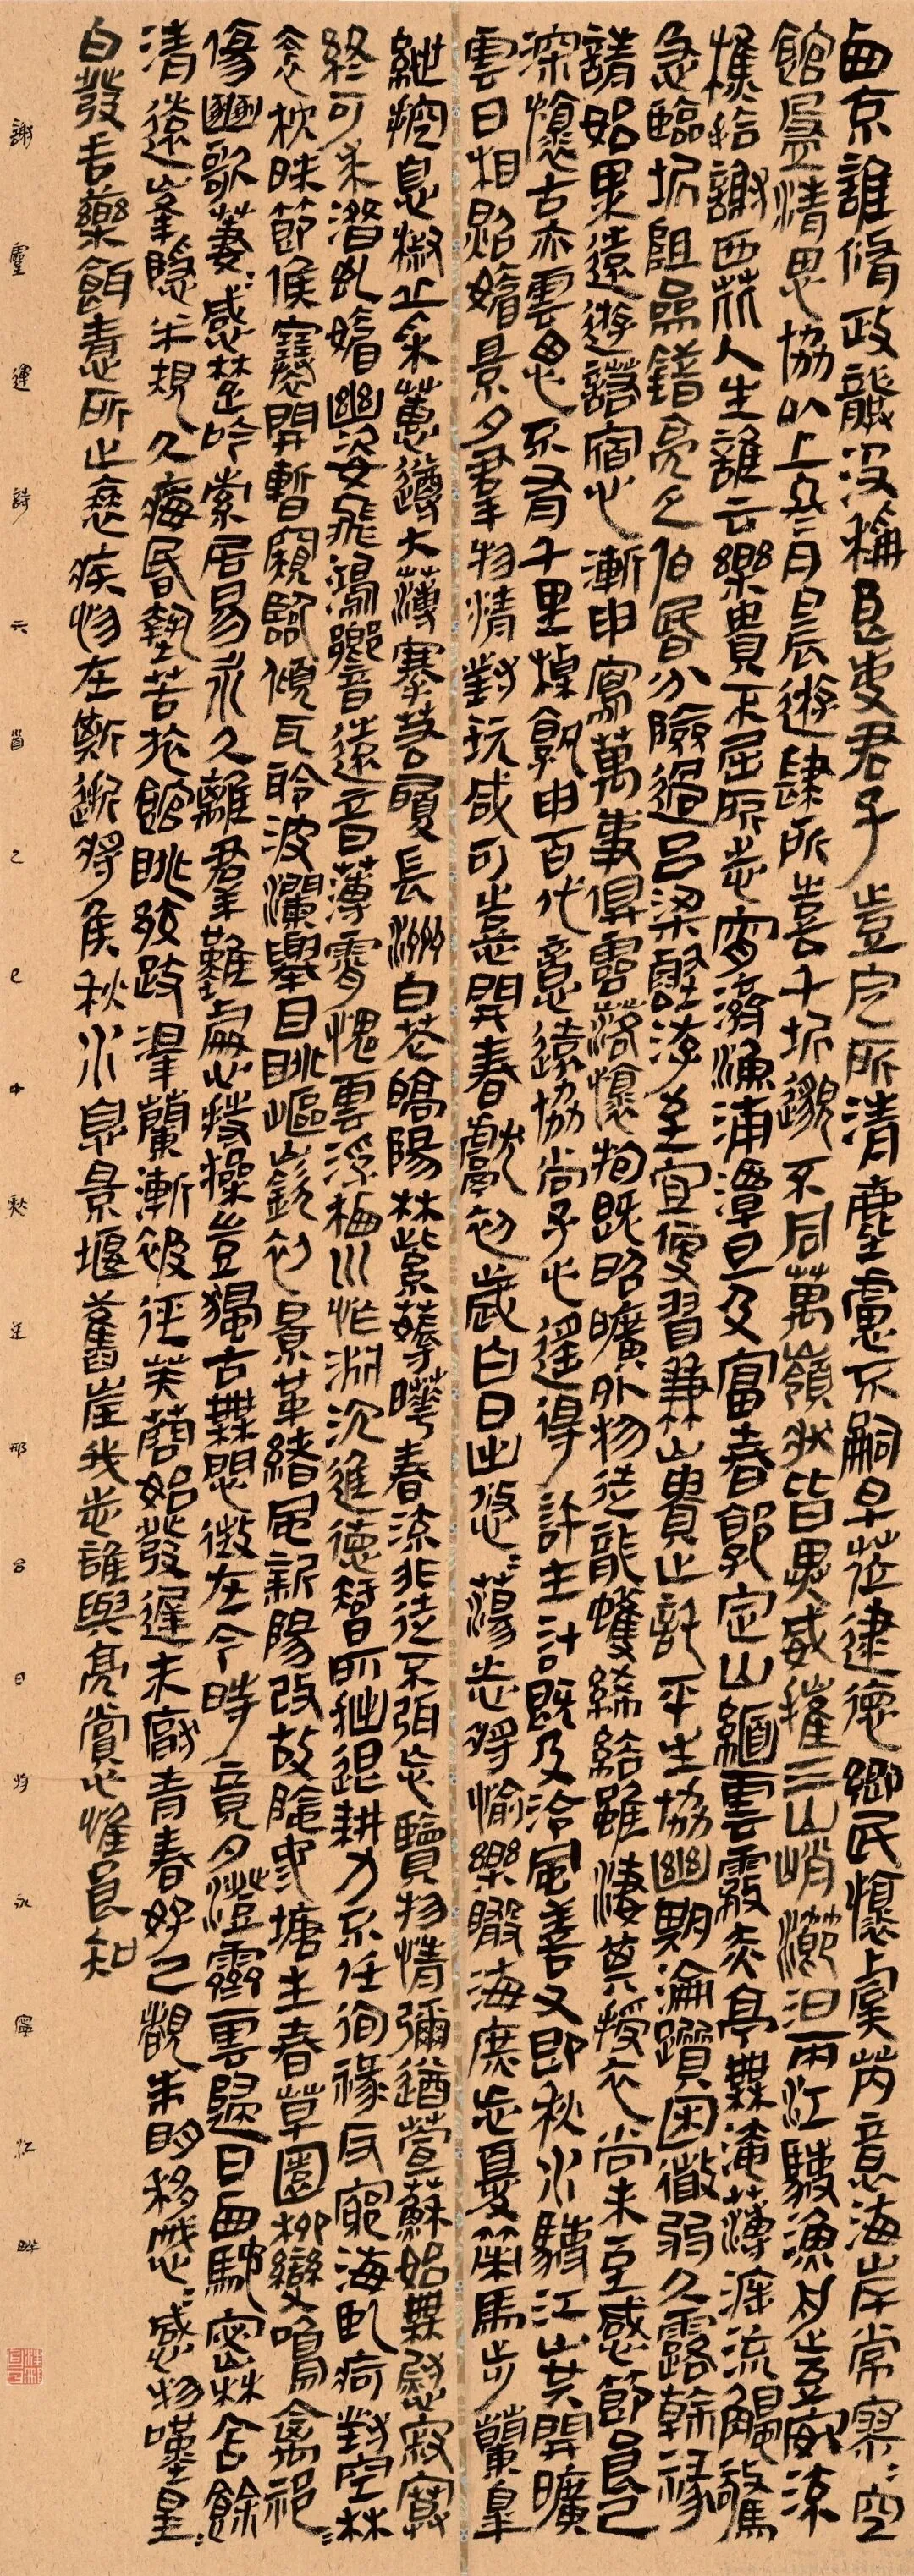 西京誰脩政龔汲稱良吏君子豈定所清塵慮不嗣早蒞建德鄉民懷虞芮意海岸常寥寥空
館盈清思協以上冬月晨遊肆所喜千圻邈不同萬嶺狀皆異威摧三山峭瀄汩兩江駛漁舟豈安流
樵拾謝西芘人生誰云樂貴不屈所志宵濟漁浦潭旦及富春郭定山緬雲霧赤亭無淹薄溯流觸驚
急臨圻阻參錯亮乏伯昏分險過呂梁壑洊至宜便習兼山貴止託平生協幽期淪躓困微弱久露幹祿
請始果遠遊諾宿心漸申寫萬事俱零落懷抱既昭曠外物徒龍蠖絺綌雖淒其授衣尚未至感節良已
深懷古亦雲思不有千里棹孰申百代意遠協尚子心遙得許生計既及泠風善又即秋水駛江山共開曠
雲日相照媚景夕羣物清對玩咸可憙開春獻初歲白日出悠悠蕩志將愉樂瞰海庶忘憂策馬步蘭皋
紲控息椒丘采蕙遵大薄搴若履長洲白花皓陽林紫虈曄春流非徒不弭忘覽物情彌遒萱蘇始無慰寂寞
終可求潛虯媚幽姿飛鴻響遠音薄霄愧雲浮棲川怍淵沉進德智所拙退耕力不任徇祿反窮海臥痾對空林
衾枕昧節候褰開暫窺臨傾耳聆波瀾舉目眺嶇嶔初景革緒風新陽改故陰池塘生春草園柳變鳴禽祁祁
傷豳歌萋萋感楚吟索居易永久離羣難處心持操豈獨古無悶徵在今時竟夕澄霽雲歸日西馳密林含餘
清遠峯隱半規久痗昏墊苦旅館眺郊歧澤蘭漸被徑芙蓉始發遲未厭青春好已覩朱明移慼慼感物嘆星星
白發垂藥餌情所止衰疾忽在斯逝將侯秋水息景偃舊崖我志誰與亮賞心惟良知
謝靈運詩六首乙巳中秋永寧江畔